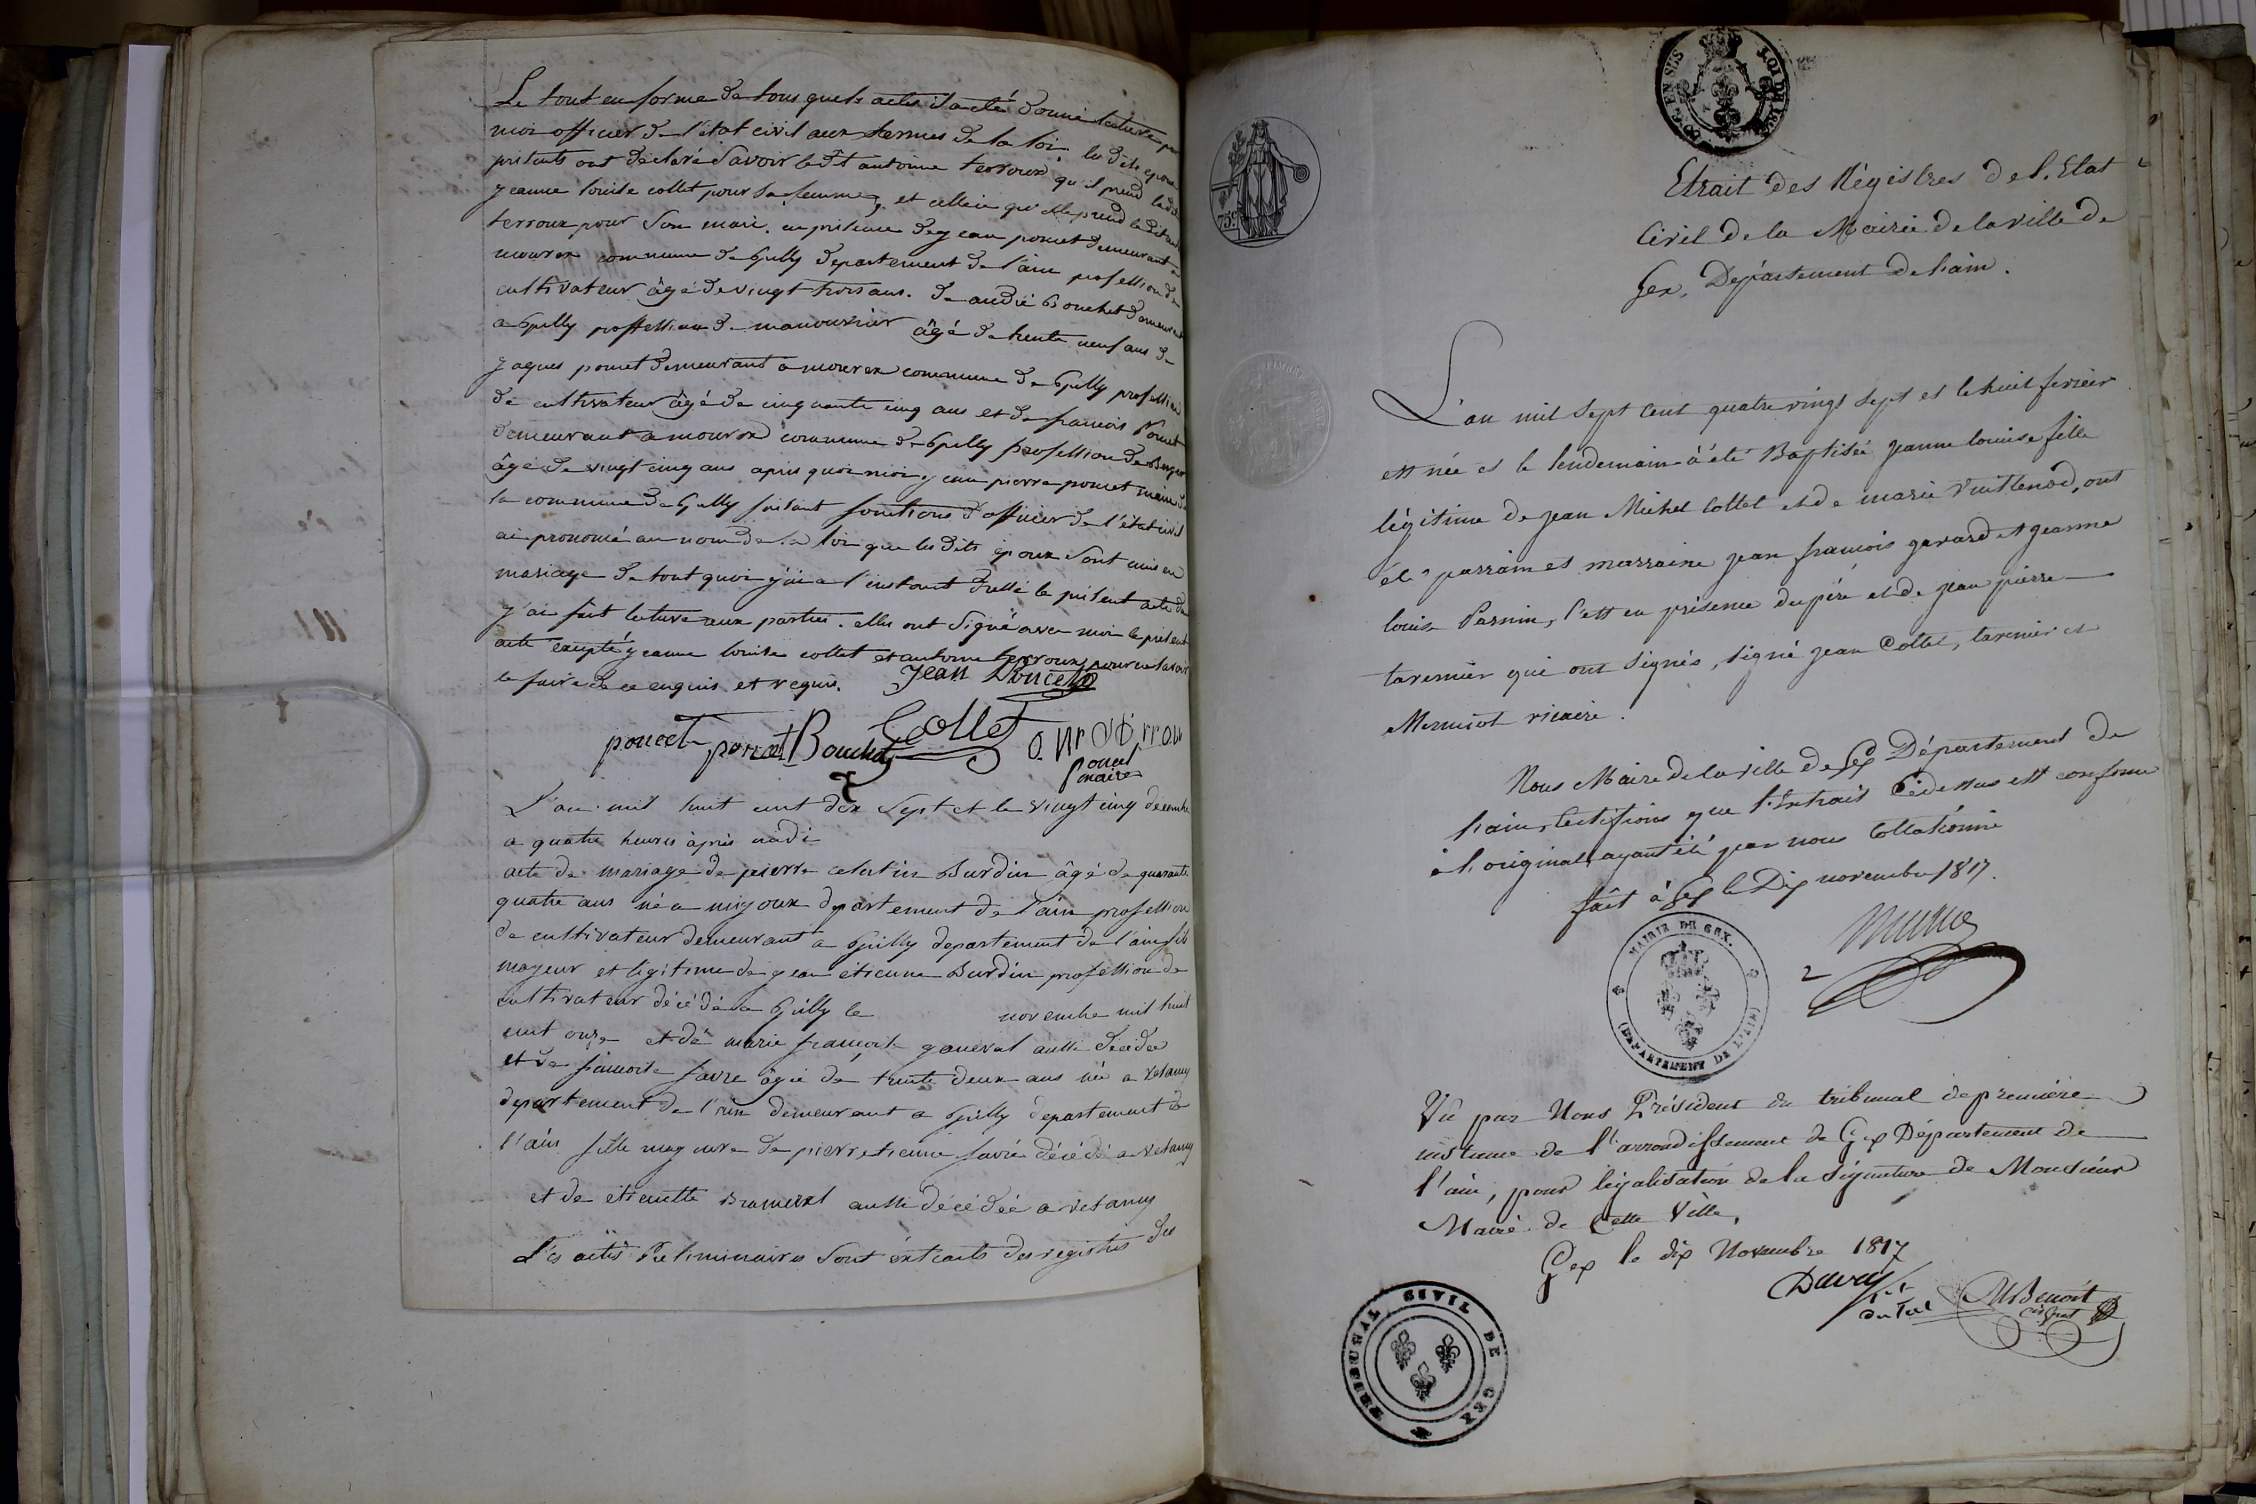 Le tout en forme de tous quels actes il a été donné lecture par
moi officier de l'état civil aux termes de la loi, les dits époux
présents ont déclaré Savoir ledit antoine terroux qu'il prend ladite
jeanne louise collet pour sa femme, et celleci qu'elle prend le dit
terroux pour Son mari. en présence de jean poncet demeurant a
mourex commune de Gilly departement de l'ain profession de
cultivateur âgé de vingt trois ans. de andré Bouchet demeurant
a Gilly proffession de manouvrier âgé de trente neuf ans de
jaques poncet demeurant a mourex commune de Gilly profession
de cultivateur âgé de cinquante cinq ans et de francois Poncet
demeurant a mourex commune de Gilly profession de Berger
âgé de vingt cinq ans après quoi moi jean pierre poncet maire de
la commune de Gilly faisant fonctions d'officier de l'état civil
ai prononcé au nom de la loi que les dits époux sont unis en
mariage de tout quoi j'ai a l'instant dressé le présent acte de
j'ai fait lecture aux parties. elles ont Signé avec moi le présent
acte excepté jeanne louise collet et antoine terroux pour ne savoir
le faire de ce enquis et requis. Jean Poncet
poncet poncet Bouchet Collet
Poncet
maire
L'an mil huit cent dix Sept et le vingt cinq décembre
a quatre heures après midi
acte de mariage de pierre celestin Burdin âgé de quarante
quatre ans né a mijoux departement de l'ain profession
de cultivateur demeurant a Gilly departement de l'ain fils
majeur et légitime de jean étienne Burdin profession de
cultivateur décédé a Gilly le novembre mil huit
cent onze et de marie francoise aussi décédée
et de francoise favre âgée de trente deux ans née a vesancy
departement de l'ain demeurant a Gilly departement de
l'ain fille majeure de pierre etienne favre décédé a vesancy
et de étiennette aussi décédée a vesancy
Les actes Préliminaires Sont éxtraits des registres des
75 c
TIMBRE
LOI DU
Extrait des Régistres de l'Etat
Civil de la Mairie de la ville de
Gex, Département de l'ain.
L'an mil sept cent quatre vingt sept et le huit fevrier
est née et le lendemain à été Baptisée jeanne louise fille
légitime de jean Michel Collet et de marie Vuillenod, ont
été parrain et marraine jean francois gavard et jeanne
louise Parnin, c'est en présence du père et de jean pierre
tavernier qui ont signés, signé jean Collet, tavernier et
vicaire.
Nous Maire de la ville de Gex Département de
l'ain, Certifions que l'Extrait cidessus est conforme
à l'original ayant été par nous Collationné
fait à Gex le Dix novembre 1817.
MAIRIE DE GEX.
(DEPARTEMENT DE L'AIN)
Vû par Nous Président du tribunal de première
instance de l'arrondissement de Gex Département de
l'ain, pour légalisation de la signature de Monsieur
Maire de Cette Ville,
Gex le dix Novembre 1817
TRIBUNAL CIVIL DE GEX